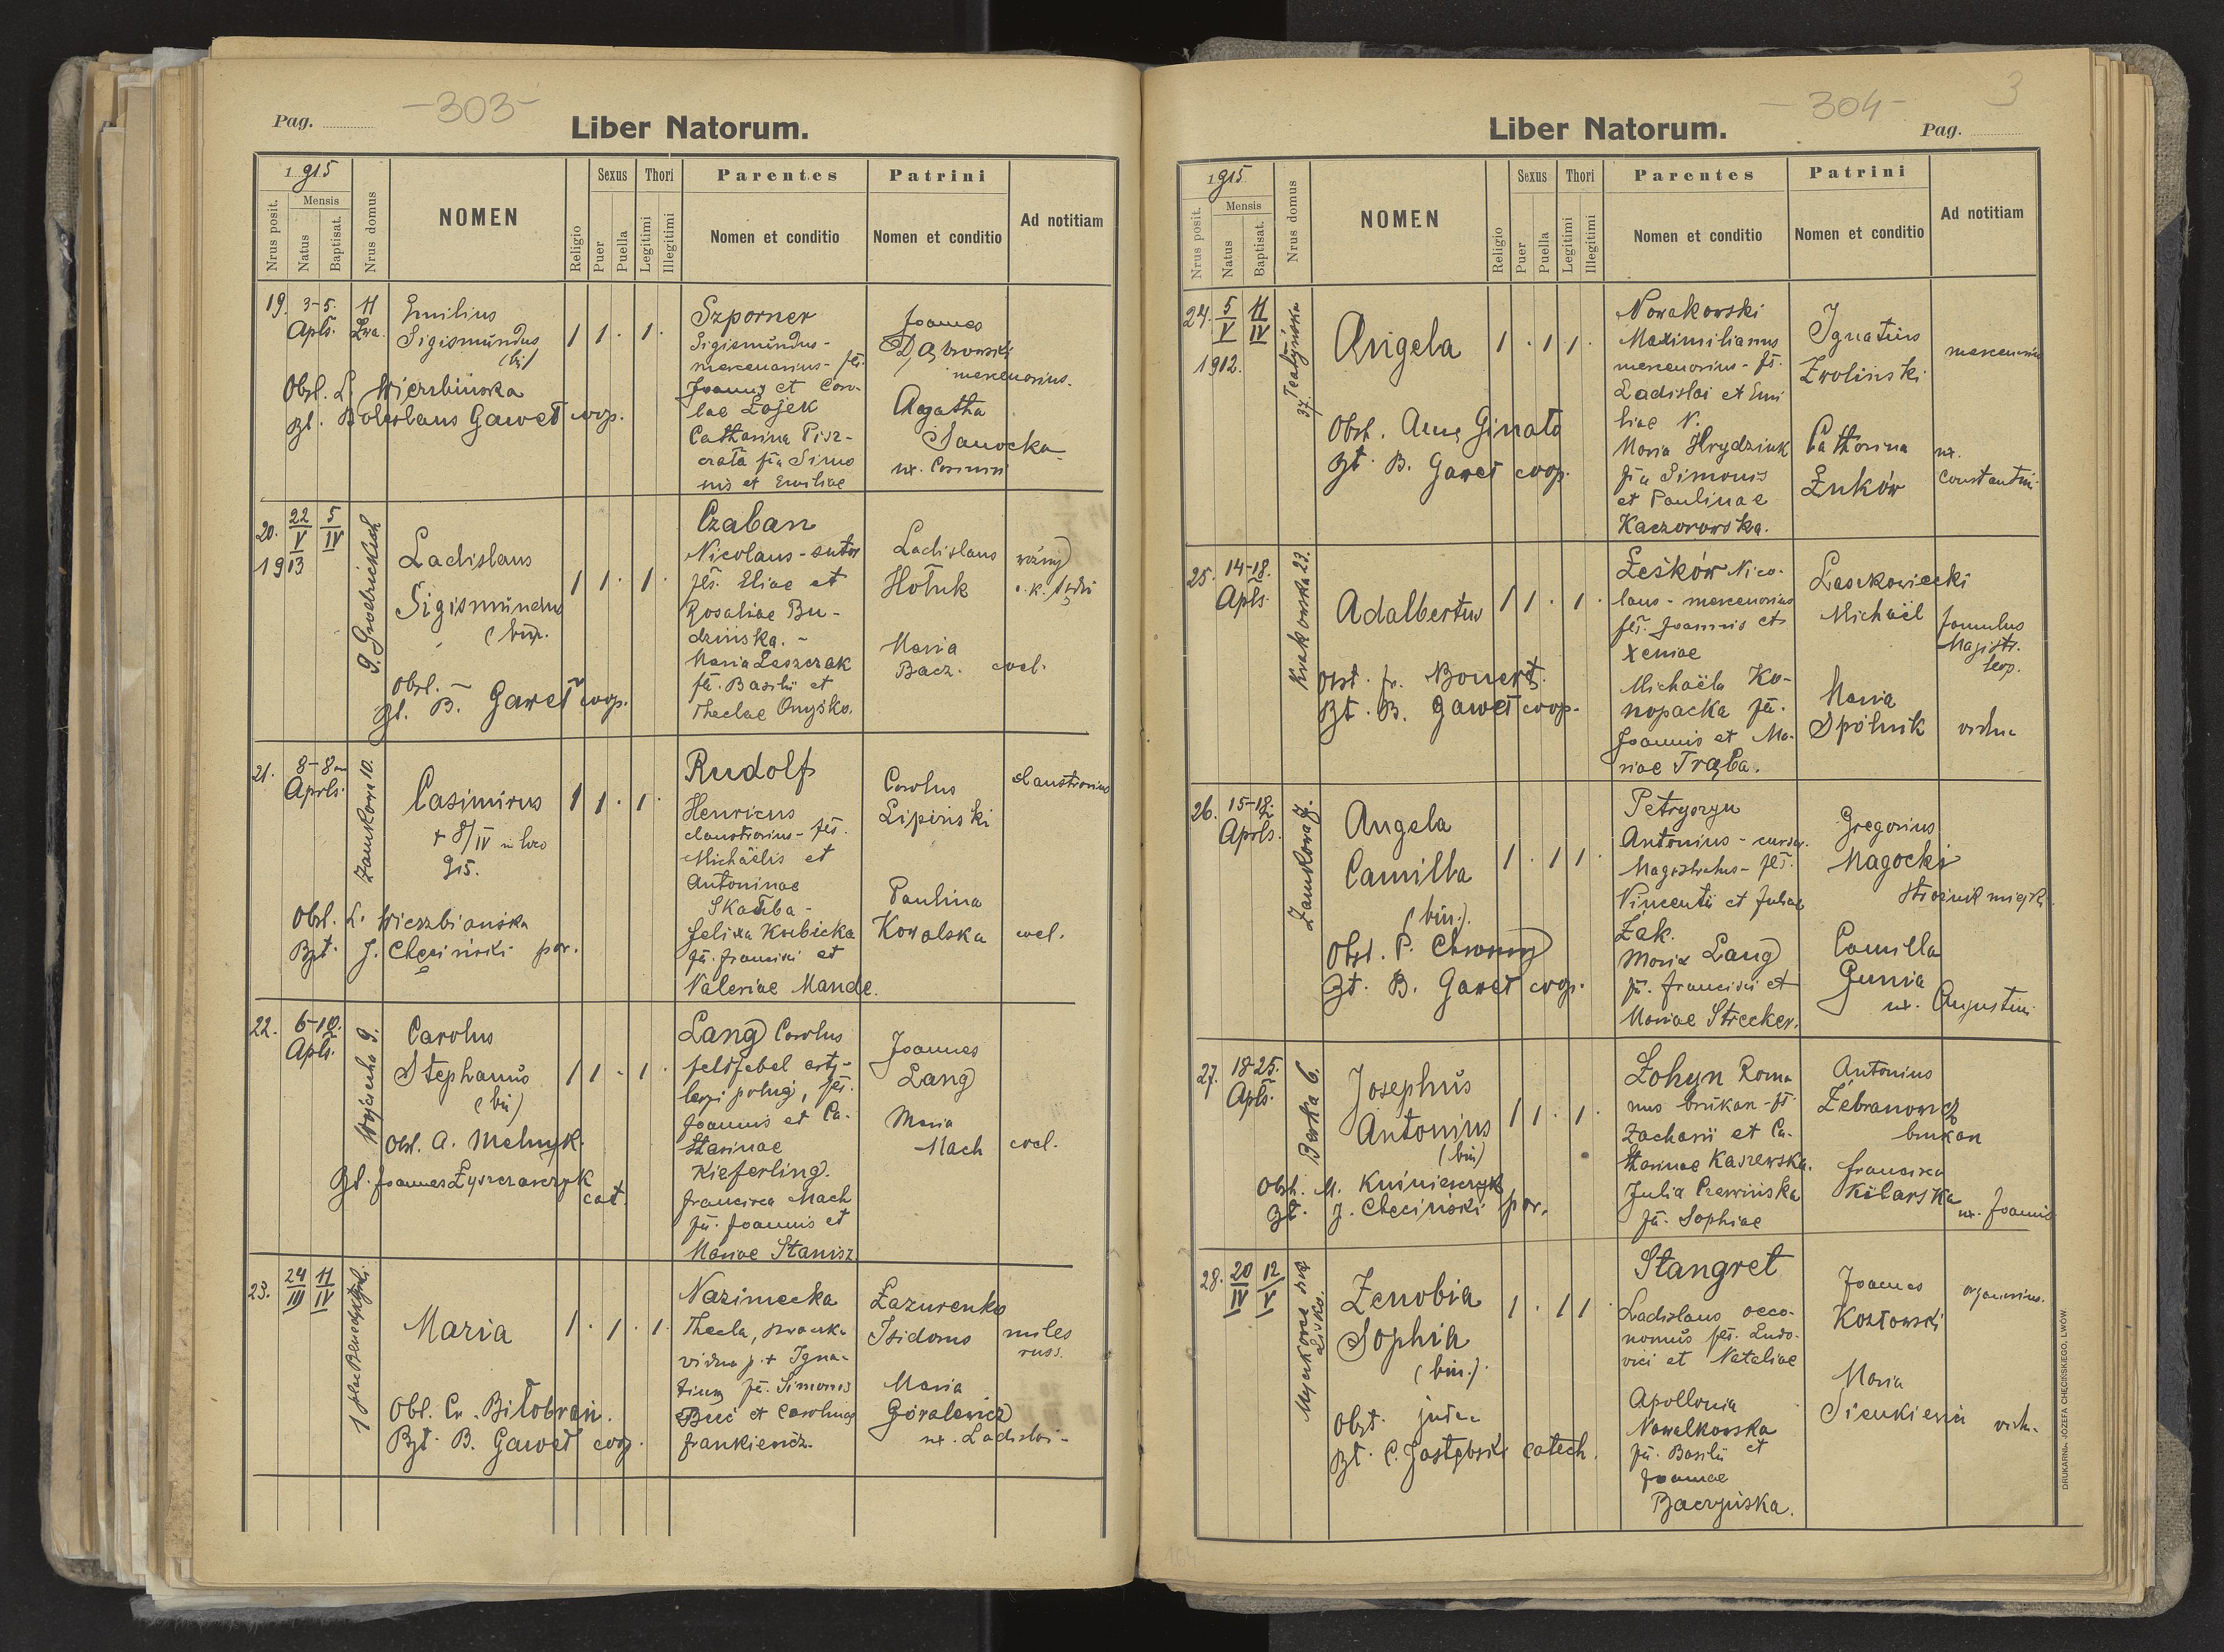 Pag.
-303-
Liber Natorum.
1915
Mensis
Nrus posit.
Natus
Baptisat.
Nrus domus
NOMEN
Religio
Sexus
Puer
Puella
Thori
Legitimi
Illegitimi
Parentes
Nomen et conditio
Patrini
Nomen et conditio
Ad notitiam
19. 3-5. Apls. 11
Emilius
Sigismundus
(bi)
1 1 . 1 .
Obst. L. Wierzbińska
Bt. Boleslaus Gaweł coop.
Szporner
Sigismundus -
mercenarius - fil.
Joannis et Caro-
lae Zajek
Catharina Pisz-
czata fia Simo
nis et Emiliae
Joannes
Dąbrowski
mercenarius.
Agatha
Sanocka
ux.
20. 22/V 5/IV
1913
G. Grodzickich
Ladislaus
Sigismundus
(bin.
1 1 . 1 .
Obst. -
Bt. B. Gaweł coop.
Czaban
Nicolaus - sutor
fil. Eliae et
Rosaliae Bu-
dzińska. -
Maria Leszczak
fil. Basilii et
Theclae Onyśko.
Ladislaus
Hołuk
woźny
Maria
Bacz. coel.
21. 8-8
Aprls.
Zamkowa 10.
Casimirus
+ 8/IV in loco
915.
1 1 . 1 .
Obst. L. Wierzbiańska
Bpt. J. Chęciński par.
Rudolf
Henricus
claustrarius - fil.
Michaëlis et
Antoninae
Skałuba -
Felixa Kubicka
fil. Francisci et
Valeriae Mande.
Carolus
Lipiński
claustrarius
Paulina
Kowalska coel.
22. 6-10. Apls.
Wójcicka 9.
Carolus
Stephanus
(bin)
1 1 - 1 .
Obst. A. Melnyk.
Bt. Joannes Łyszczarczyk
cat.
Lang Carolus
feldfebel arty-
leryi polnej, fil.
Joannis et Ca-
tharinae
Kieferling.
Francisca Mach
fil. Joannis et
Mariae Stanisz
Joannes
Lang
Maria
Mach coel.
23. 24/III 11/IV
Maria
1 . 1 . 1.
Obst. Białobran.
Bpt. B. Gaweł coop.
Nazimecka
Thecla,
vidua p. + Igna-
tium fil. Simonis
Buć et Carolinae
Frankiewicz.
Łazurenko
Isidorus miles
russ.
Maria
Góralewicz
ux. Ladislai -
-304-
3
Liber Natorum.
Pag.
1915
Mensis
Nrus posit.
Natus
Baptisat.
Nrus domus
NOMEN
Religio
Sexus
Puer
Puella
Thori
Legitimi
Illegitimi
Parentes
Nomen et conditio
Patrini
Nomen et conditio
Ad notitiam
24. 5/V 11/IV
1912.
Teatyńska
37.
Angela
1 . 1 1 .
Obst. Anna Ginato
Bt. B. Gaweł coop.
Nowakowski
Maximilianus
mercenarius - fil.
Ladislai et Emi
liae N.
Maria Hrydziuk
fia Simonis
et Paulinae
Kaczorowska.
Ignatius
Zwoliński
mercenarius
Catharina ux.
Żuków Constantini
25. 14-18. Apls.
Krakowska 23.
Adalbertus
1 1 . 1 .
Obst. fr. Bonert.
Bt. B. Gaweł coop.
Leśków Nico-
laus - mercenarius
fil. Joannis et
Xeniae
Michaëla Ko-
nopacka fil.
Joannis et Ma-
riae Trąba.
Laskowiecki
Michaël famulus
Magistr.
leop.
Maria
Spólnik vidua
26. 15-18. Aprls.
Zamkowa 7.
Angela
Camilla
(bin.).
1 . 1 1 .
Obst. P. Chromy
Bt. B. Gaweł coop.
Petryszyn
Antonius - cursor
Magistratus - fil.
Vincentii et Juliae
Żak.
Maria Lang
fil. Francisci et
Mariae Strecker.
Gregorius
Magocki
strażnik miejsk.
Camilla
Gunia
ux. Augustini
27. 18-25. Apls.
Berka 6.
Josephus
Antonius
(bin)
1 1 . 1 .
Obst. M. Kuśnierczyk
Bt. J. Chęciński par.
Łohyn Roma
nus brukarz - fil
Zacharii et Ca-
tharinae Kaszewska.
Julia Czerwińska
fil. Sophiae
Antonius
Żebranowicz
brukarz
Francisca
Kilarska
ux. Joannis
28. 20/IV 12/V
Zenobia
Sophia
(bin.).
1 . 1 1 .
Obst.
Bt. C. Jastrębski catech.
Stangret
Ladislaus oeco-
nomus fil. Ludo-
vici et Nataliae
Apollonia
Nowalkowska
fil. Basilii et
Joannae
Baczyńska.
Joannes
Kozłowski
organarius.
Maria
Sienkiewicz vidua
DRUKARNIA JÓZEFA CHĘCIŃSKIEGO, LWÓW